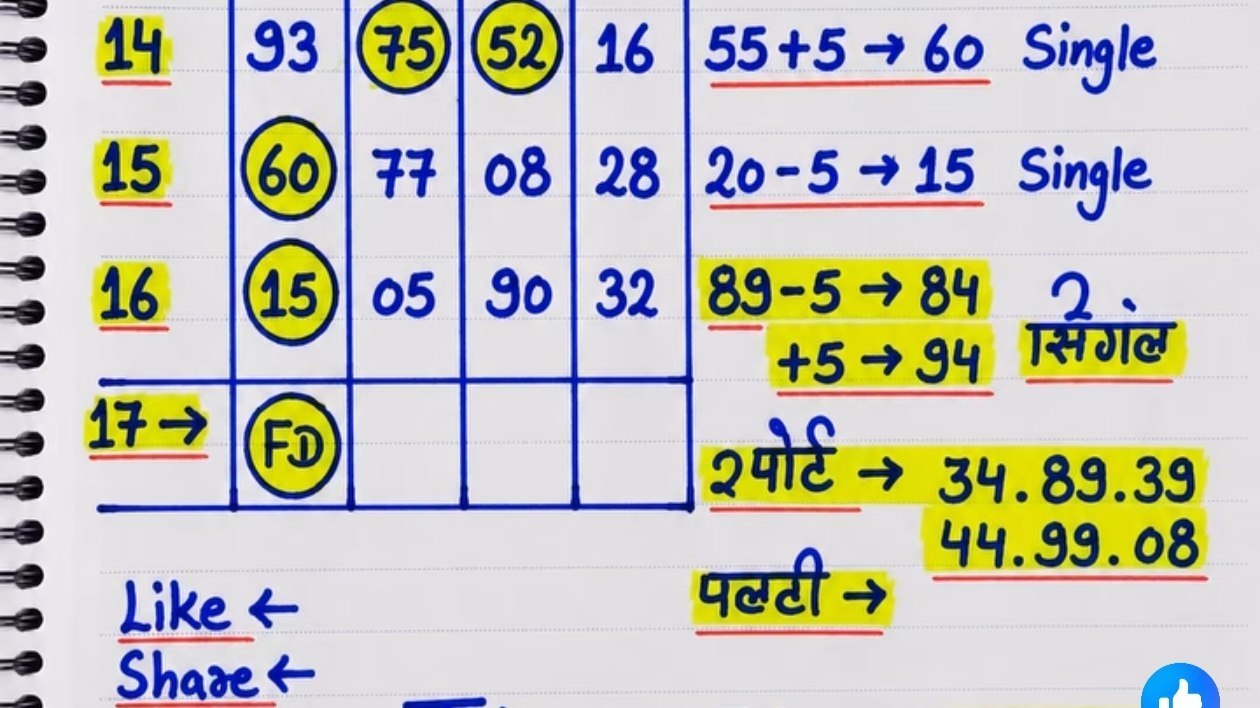 14 93 75 52 16 55+5 → 60 Single
15 60 77 08 28 20-5 → 15 Single
16 15 05 90 32 89-5 → 84
+5 → 94
2
सिंगल
17 → FD
2 पोर्ट → 34.89.39
44.99.08
पलटी →
Like ←
Share ←